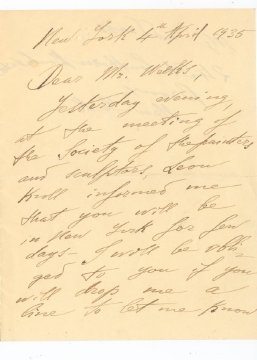 New York 4th April 1935
Dear Mr. Weeks,
Yesterday evening,
at the meeting of
the Society of the painters
and sculptors, Leon
Kroll informed me
that you will be
in New York for few
days - I will be obli-
ged to you if you
will drop me a
line to let me know